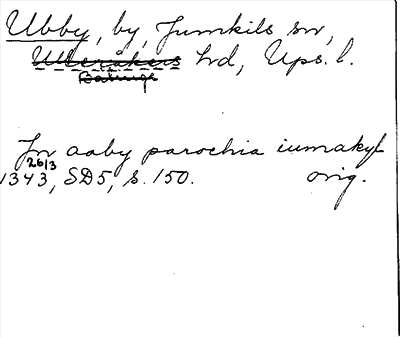 Ubby, by, Jumkils sn,
Ulleråkers hd, Ups. l.
In aaby parochia iumakyl
26/3
1343, SD5, s. 150. orig.